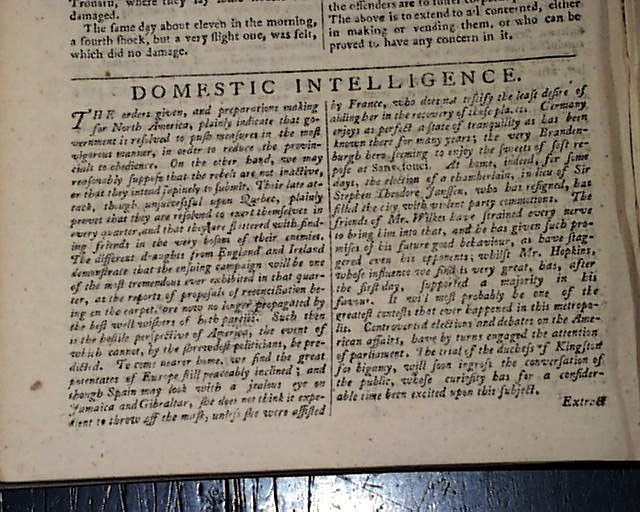 Trouain, where they
damaged.
The same day about eleven in the morning,
a fourth shock, but a very slight one, was felt,
which did no damage.
the offenders are to suffer
The above is to extend to all concerned, either
in making or vending them, or who can be
proved to have any concern in it.
DOMESTIC INTELLIGENCE.
THE orders given, and preparations making
for North America, plainly indicate that go-
vernment is resolved to push measures in the most
vigorous manner, in order to reduce the provin-
cials to obedience. On the other hand, we may
reasonably suppose that the rebels are not inactive,
or that they intend supinely to submit. Their late at-
tack, though unsuccessful upon Quebec, plainly
proves that they are resolved to exert themselves in
every quarter, and that they are flattered with find-
ing friends in the very bosom of their enemies.
The different draughts from England and Ireland
demonstrate that the ensuing campaign will be one
of the most tremendous ever exhibited in that quar-
ter, as the reports of proposals of reconciliation be-
ing on the carpet, are now no longer propagated by
the best well wishers of both parties. Such then
is the hostile perspective of America, the event of
which cannot, by the shrewdest politicians, be pre-
dicted. To come nearer home, we find the great
potentates of Europe still peaceably inclined; and
though Spain may look with a jealous eye on
Jamaica and Gibraltar, she does not think it expe-
dient to throw off the mask, unless she were assisted
by France, who does not testify the least desire of
aiding her in the recovery of those places. Germany
enjoys as perfect a state of tranquility as has been
known there for many years; the very Branden-
burgh hero seeming to enjoy the sweets of soft re-
pose at Sans souci. At home, indeed, for some
days, the election of a chamberlain, in lieu of Sir
Stephen Theodore Janssen, who has resigned, has
filled the city with violent party commotions. The
friends of Mr. Wilkes have strained every nerve
to bring him into that, and he has given such pro-
mises of his future good behaviour, as have stag-
gered even his opponents; whilst Mr. Hopkins,
whose influence we find is very great, has, after
the first day, supported a majority in his
favour. It will most probably be one of the
greatest contests that ever happened in this metropo-
lis. Controverted elections and debates on the Ame-
rican affairs, have by turns engaged the attention
of parliament. The trial of the duchess of Kingston
for bigamy, will soon ingross the conversation of
the public, whose curiosity has for a consider-
able time been excited upon this subject.
Extract